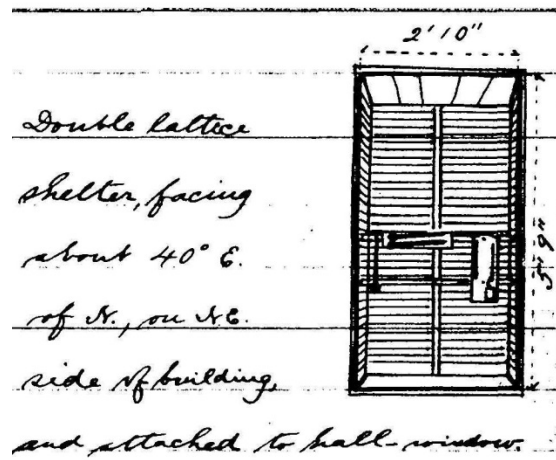 2' 10"
Double lattice
shelter, facing
about 40° E.
of N., on N.E.
side of building,
and attached to hall-window.
3' 9"